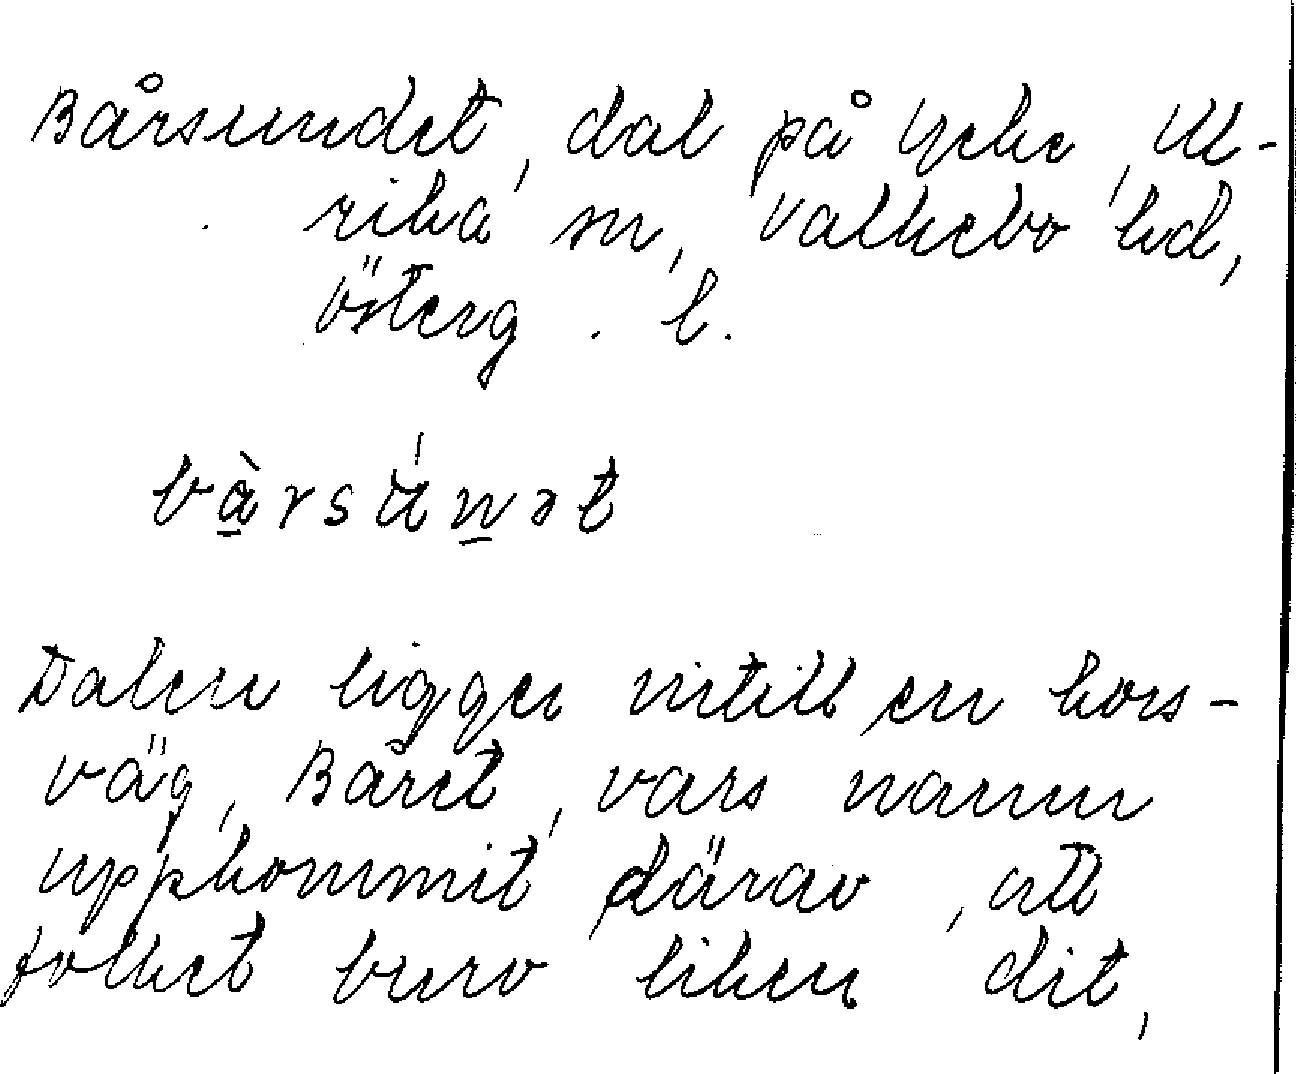 Bårsundet, dal på Lycke, Ul-
rika sn, Valkebo hd,
Österg. l.
bàrsúnət
Dalen ligger intill en kors-
väg, Båret, vars namn
uppkommit därav, att
folket buro liken dit,